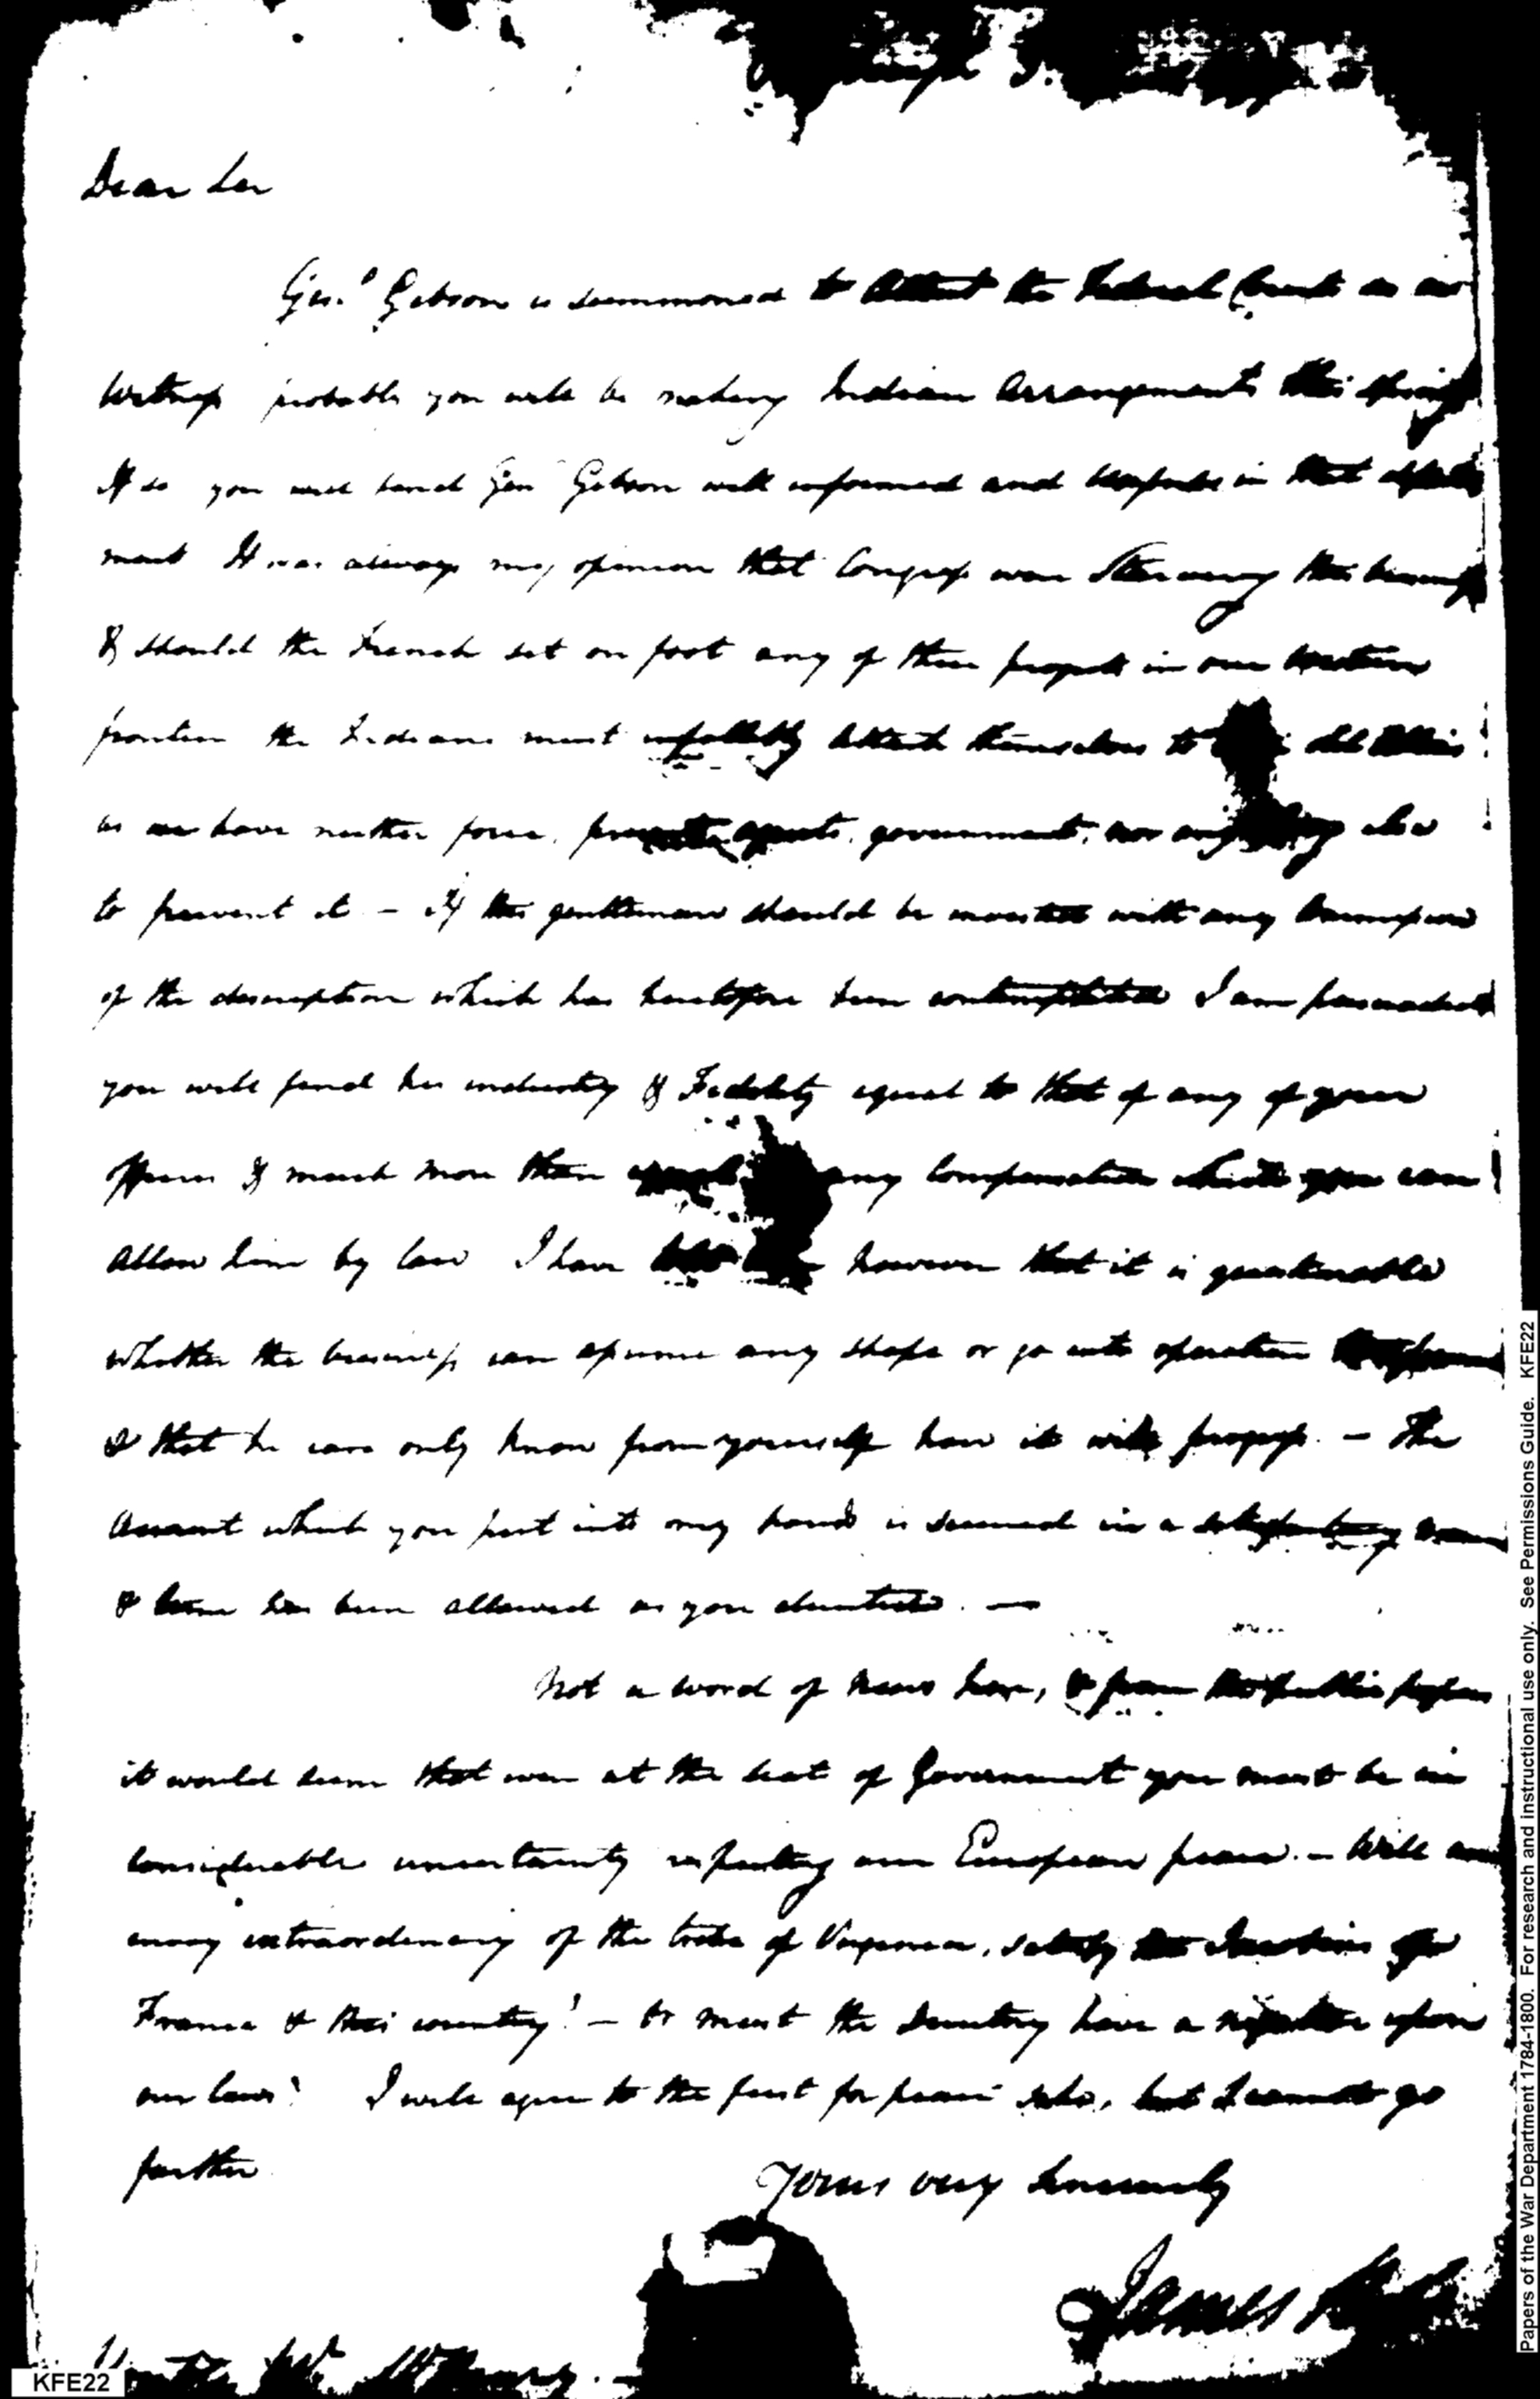 Dear Sir
Genl Gibson is summoned to attend the Federal Court as an
Witness probable you will be making Indian Arrangements this spring
If so you will find Gen Gibson well informed and in that depart
ment It was always my opinion that Congress were Starving this business
& should the French set on foot any of their projects in our western
frontier the Indians must infallibly attach themselves to
as we have neither force, presents, agents, government, nor anything else
to prevent it – If this gentleman should be with any business
of the description which has heretofore been contemplated I am persuaded
you will find his industry & Fidelity equal to that of any of your
officers & much more than equal any compensation which you can
allow him by law I have told however that it is questionable
whether the business can assume any shape or go into operation
& that he can only know from yourself how it will progress. – The
Account which you put into my hands is secured in a satisfactory
& time has been allowed as you directed. —
Not a word of news here, & from the public papers
it would seem that even at the seat of Government you must be in
considerable uncertainty respecting our European peace. – Will an
envoy extraordinary of the tribe of Virginia, satisfy the Jacobins of
France & this country? – Or must the have a negative upon
our laws? I will agree to the first for peace sake, but I cannot go
further
Yours very sincerely
James
KFE22
Papers of the War Department 1784-1800. For research and instructional use only. See Permissions Guide. KFE22